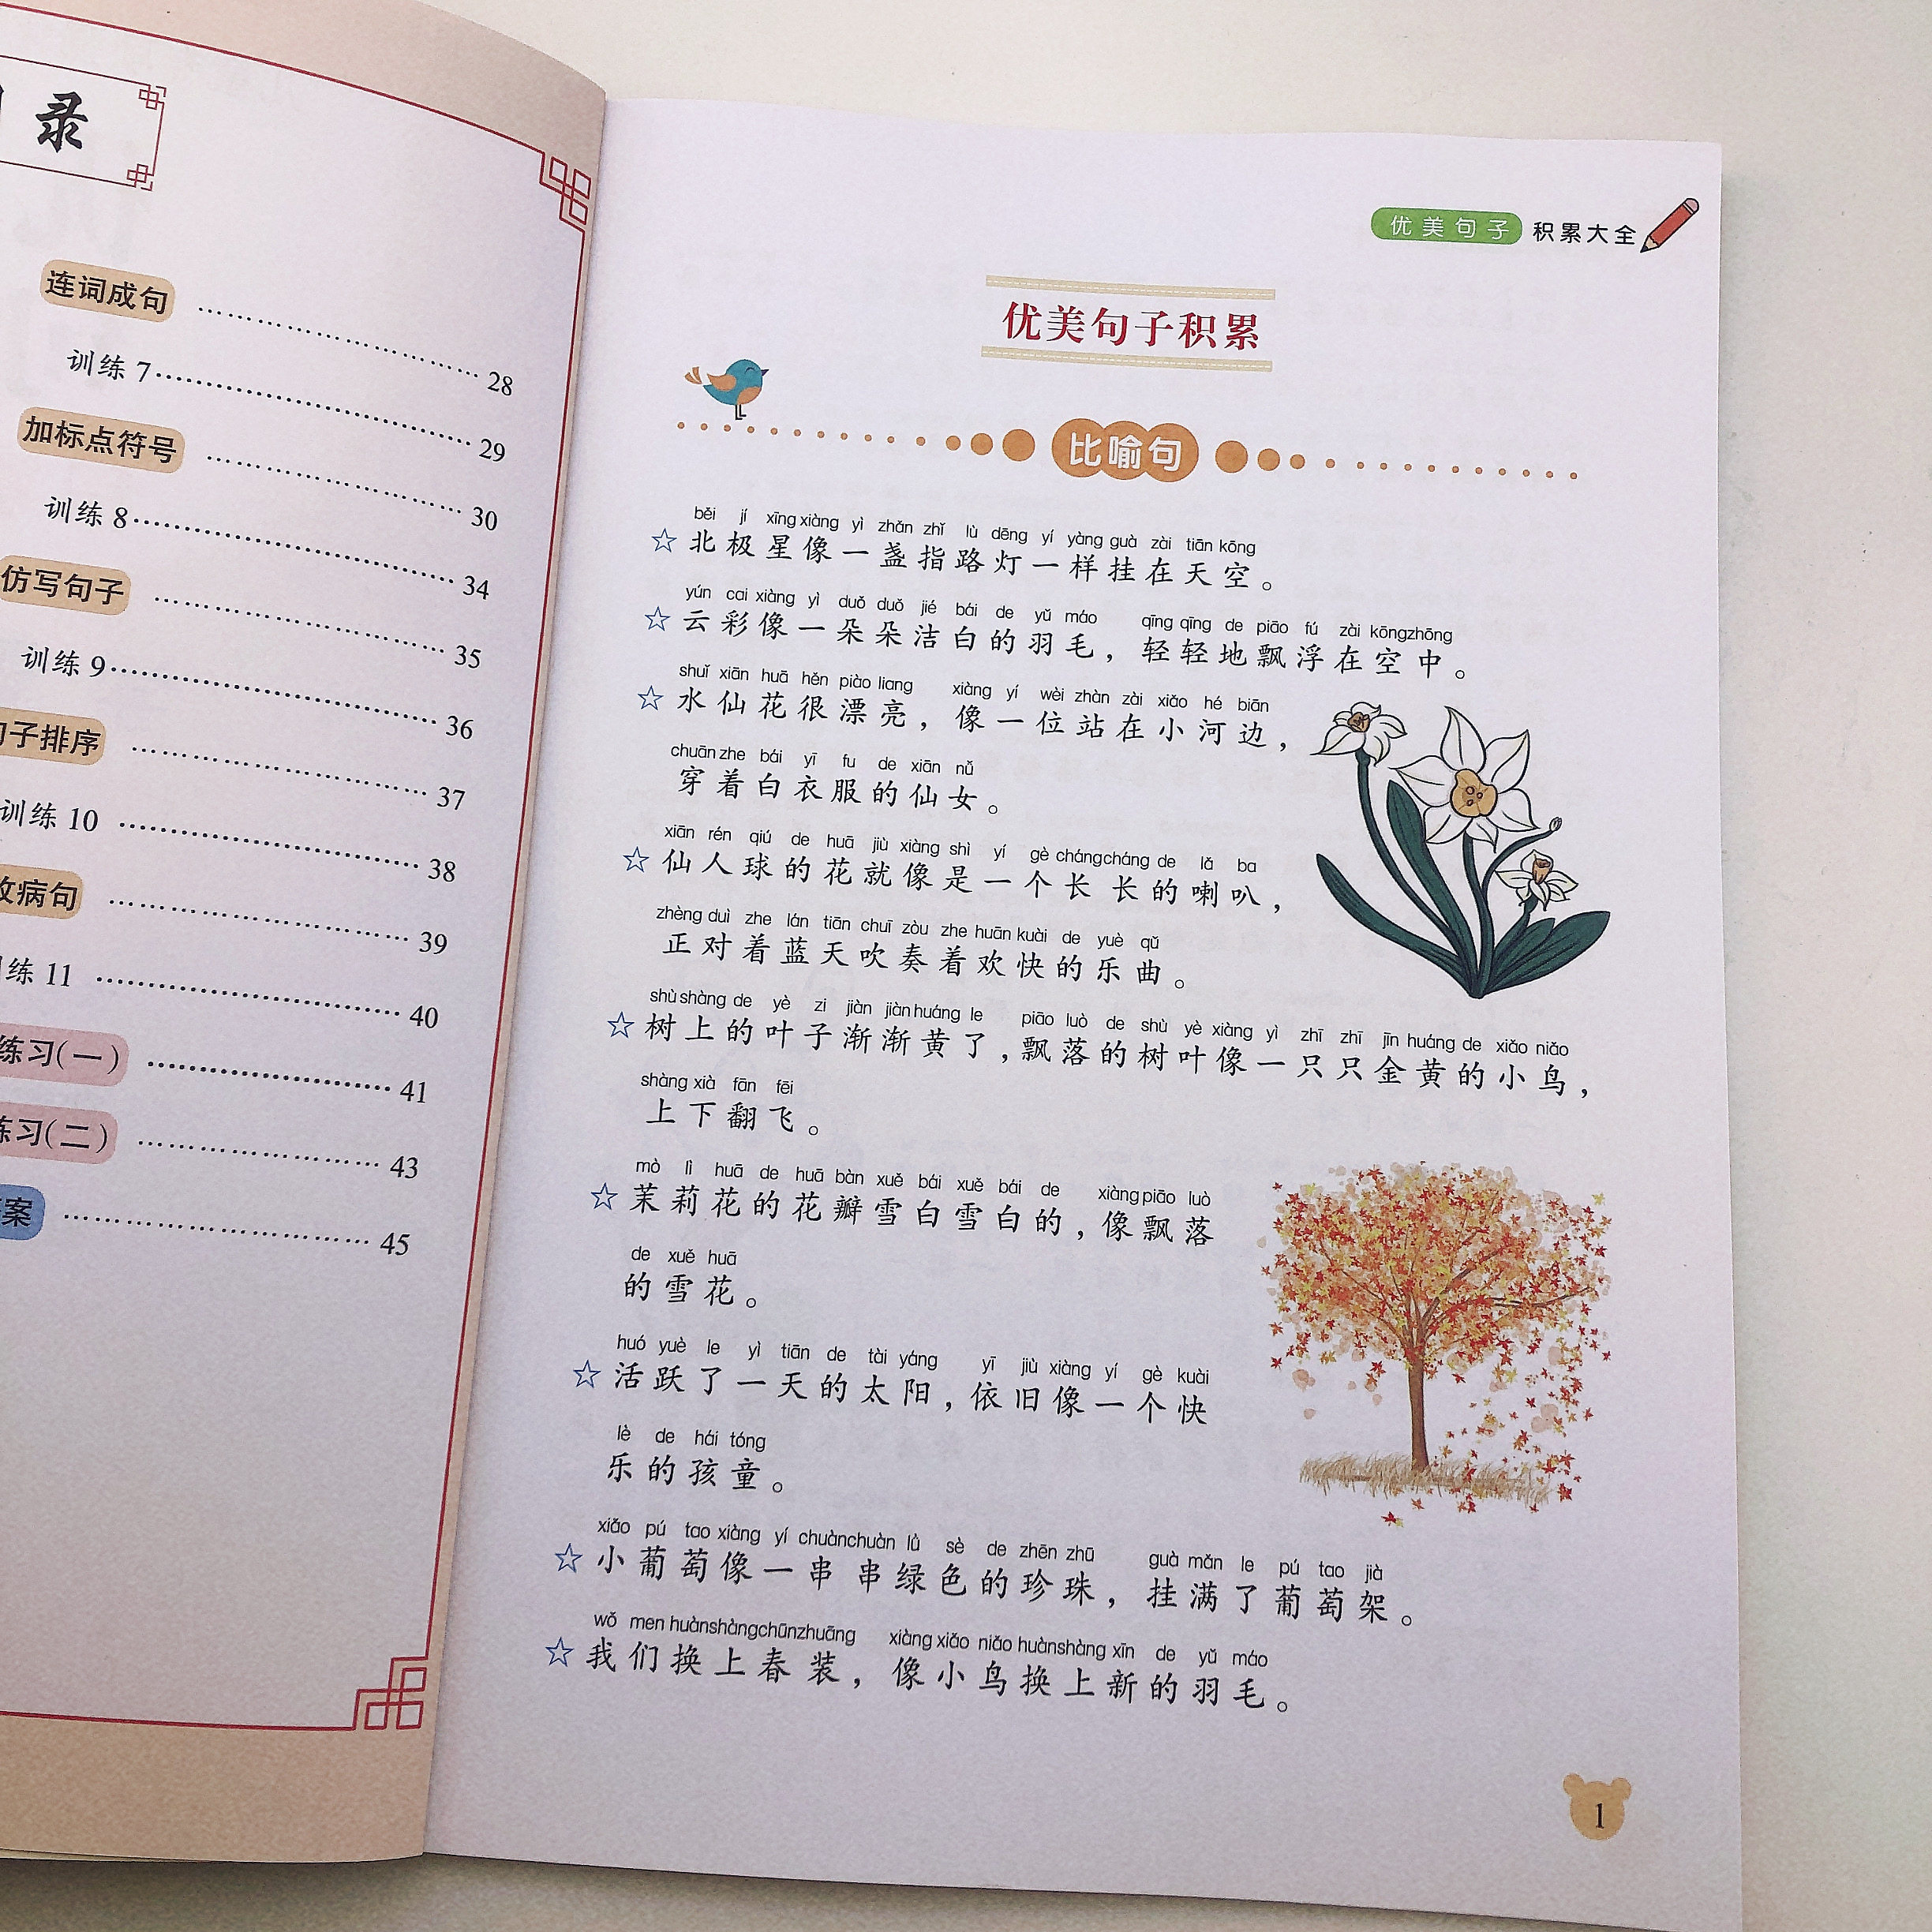 录
连词成句 …………………… 28
训练 7 …………………… 29
加标点符号 …………………… 30
训练 8 …………………… 34
仿写句子 …………………… 35
训练 9 …………………… 36
子排序 …………………… 37
训练 10 …………………… 38
病句 …………………… 39
练 11 …………………… 40
练习(一) …………………… 41
练习(二) …………………… 43
案 …………………… 45
优美句子 积累大全
优美句子积累
比喻句
běi jí xīng xiàng yì zhǎn zhǐ lù dēng yí yàng guà zài tiān kōng
☆ 北极星像一盏指路灯一样挂在天空。
yún cai xiàng yì duǒ duǒ jié bái de yǔ máo qīng qīng de piāo fú zài kōng zhōng
☆ 云彩像一朵朵洁白的羽毛，轻轻地飘浮在空中。
shuǐ xiān huā hěn piào liang xiàng yí wèi zhàn zài xiǎo hé biān
☆ 水仙花很漂亮，像一位站在小河边，
chuān zhe bái yī fu de xiān nǚ
穿着白衣服的仙女。
xiān rén qiú de huā jiù xiàng shì yí gè cháng cháng de lǎ ba
☆ 仙人球的花就像是一个长长的喇叭，
zhèng duì zhe lán tiān chuī zòu zhe huān kuài de yuè qǔ
正对着蓝天吹奏着欢快的乐曲。
shù shàng de yè zi jiàn jiàn huáng le piāo luò de shù yè xiàng yì zhī zhī jīn huáng de xiǎo niǎo
☆ 树上的叶子渐渐黄了，飘落的树叶像一只只金黄的小鸟，
shàng xià fān fēi
上下翻飞。
mò lì huā de huā bàn xuě bái xuě bái de xiàng piāo luò
☆ 茉莉花的花瓣雪白雪白的，像飘落
de xuě huā
的雪花。
huó yuè le yì tiān de tài yáng yī jiù xiàng yí gè kuài
☆ 活跃了一天的太阳，依旧像一个快
lè de hái tóng
乐的孩童。
xiǎo pú tao xiàng yí chuàn chuàn lǜ sè de zhēn zhū guà mǎn le pú tao jià
☆ 小葡萄像一串串绿色的珍珠，挂满了葡萄架。
wǒ men huàn shàng chūn zhuāng xiàng xiǎo niǎo huàn shàng xīn de yǔ máo
☆ 我们换上春装，像小鸟换上新的羽毛。
1